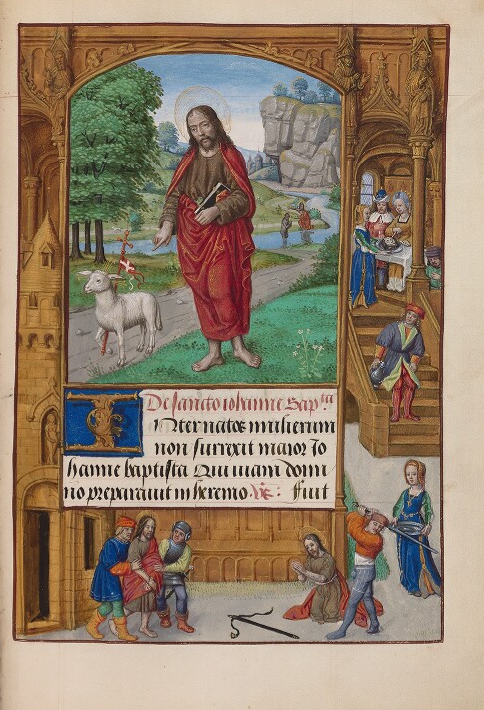 De sancto iohanne bap^ta
INter natos mulierum
non surrexit maior Jo
hanne baptista Qui uiam domi
no preparauit in heremo. Fuit